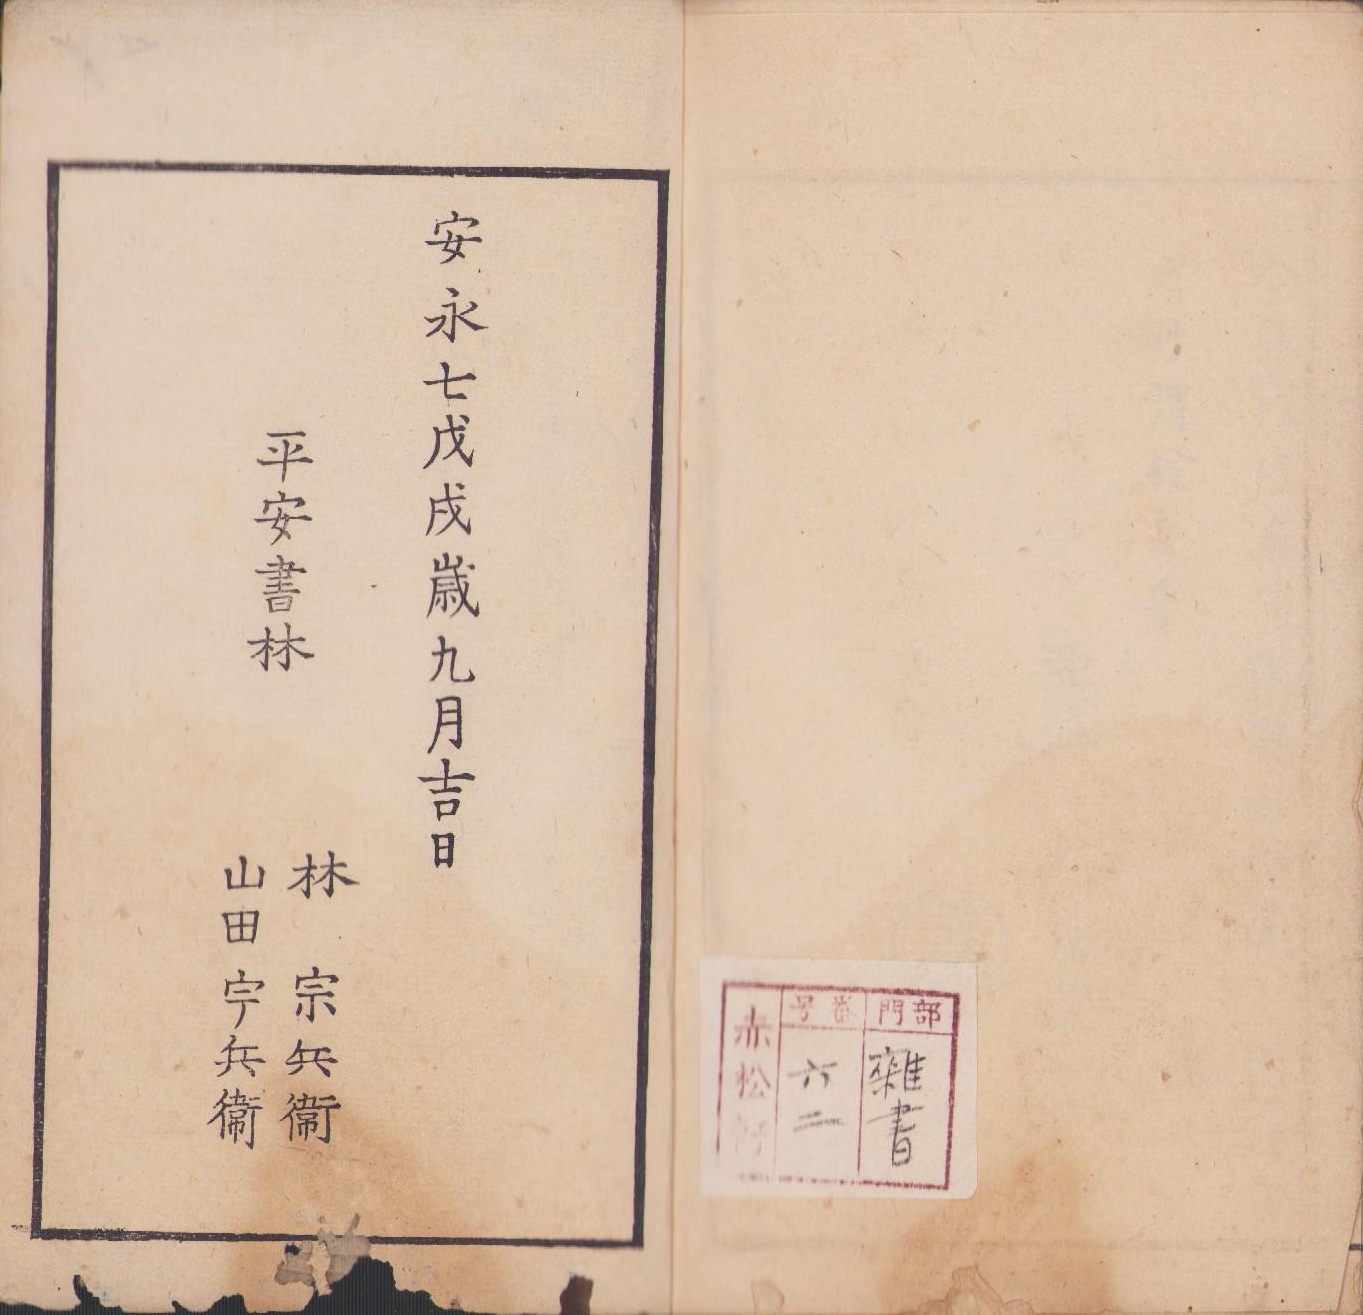 部門
雜書
番号
六二
赤松
安永七戊戌歳九月吉日
平安書林
林 宗兵衞
山田宇兵衞